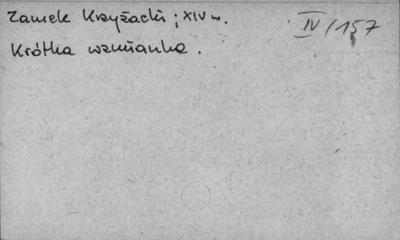 Zamek Krzyżacki; XIV w. IV/157
Krótka wzmianka.